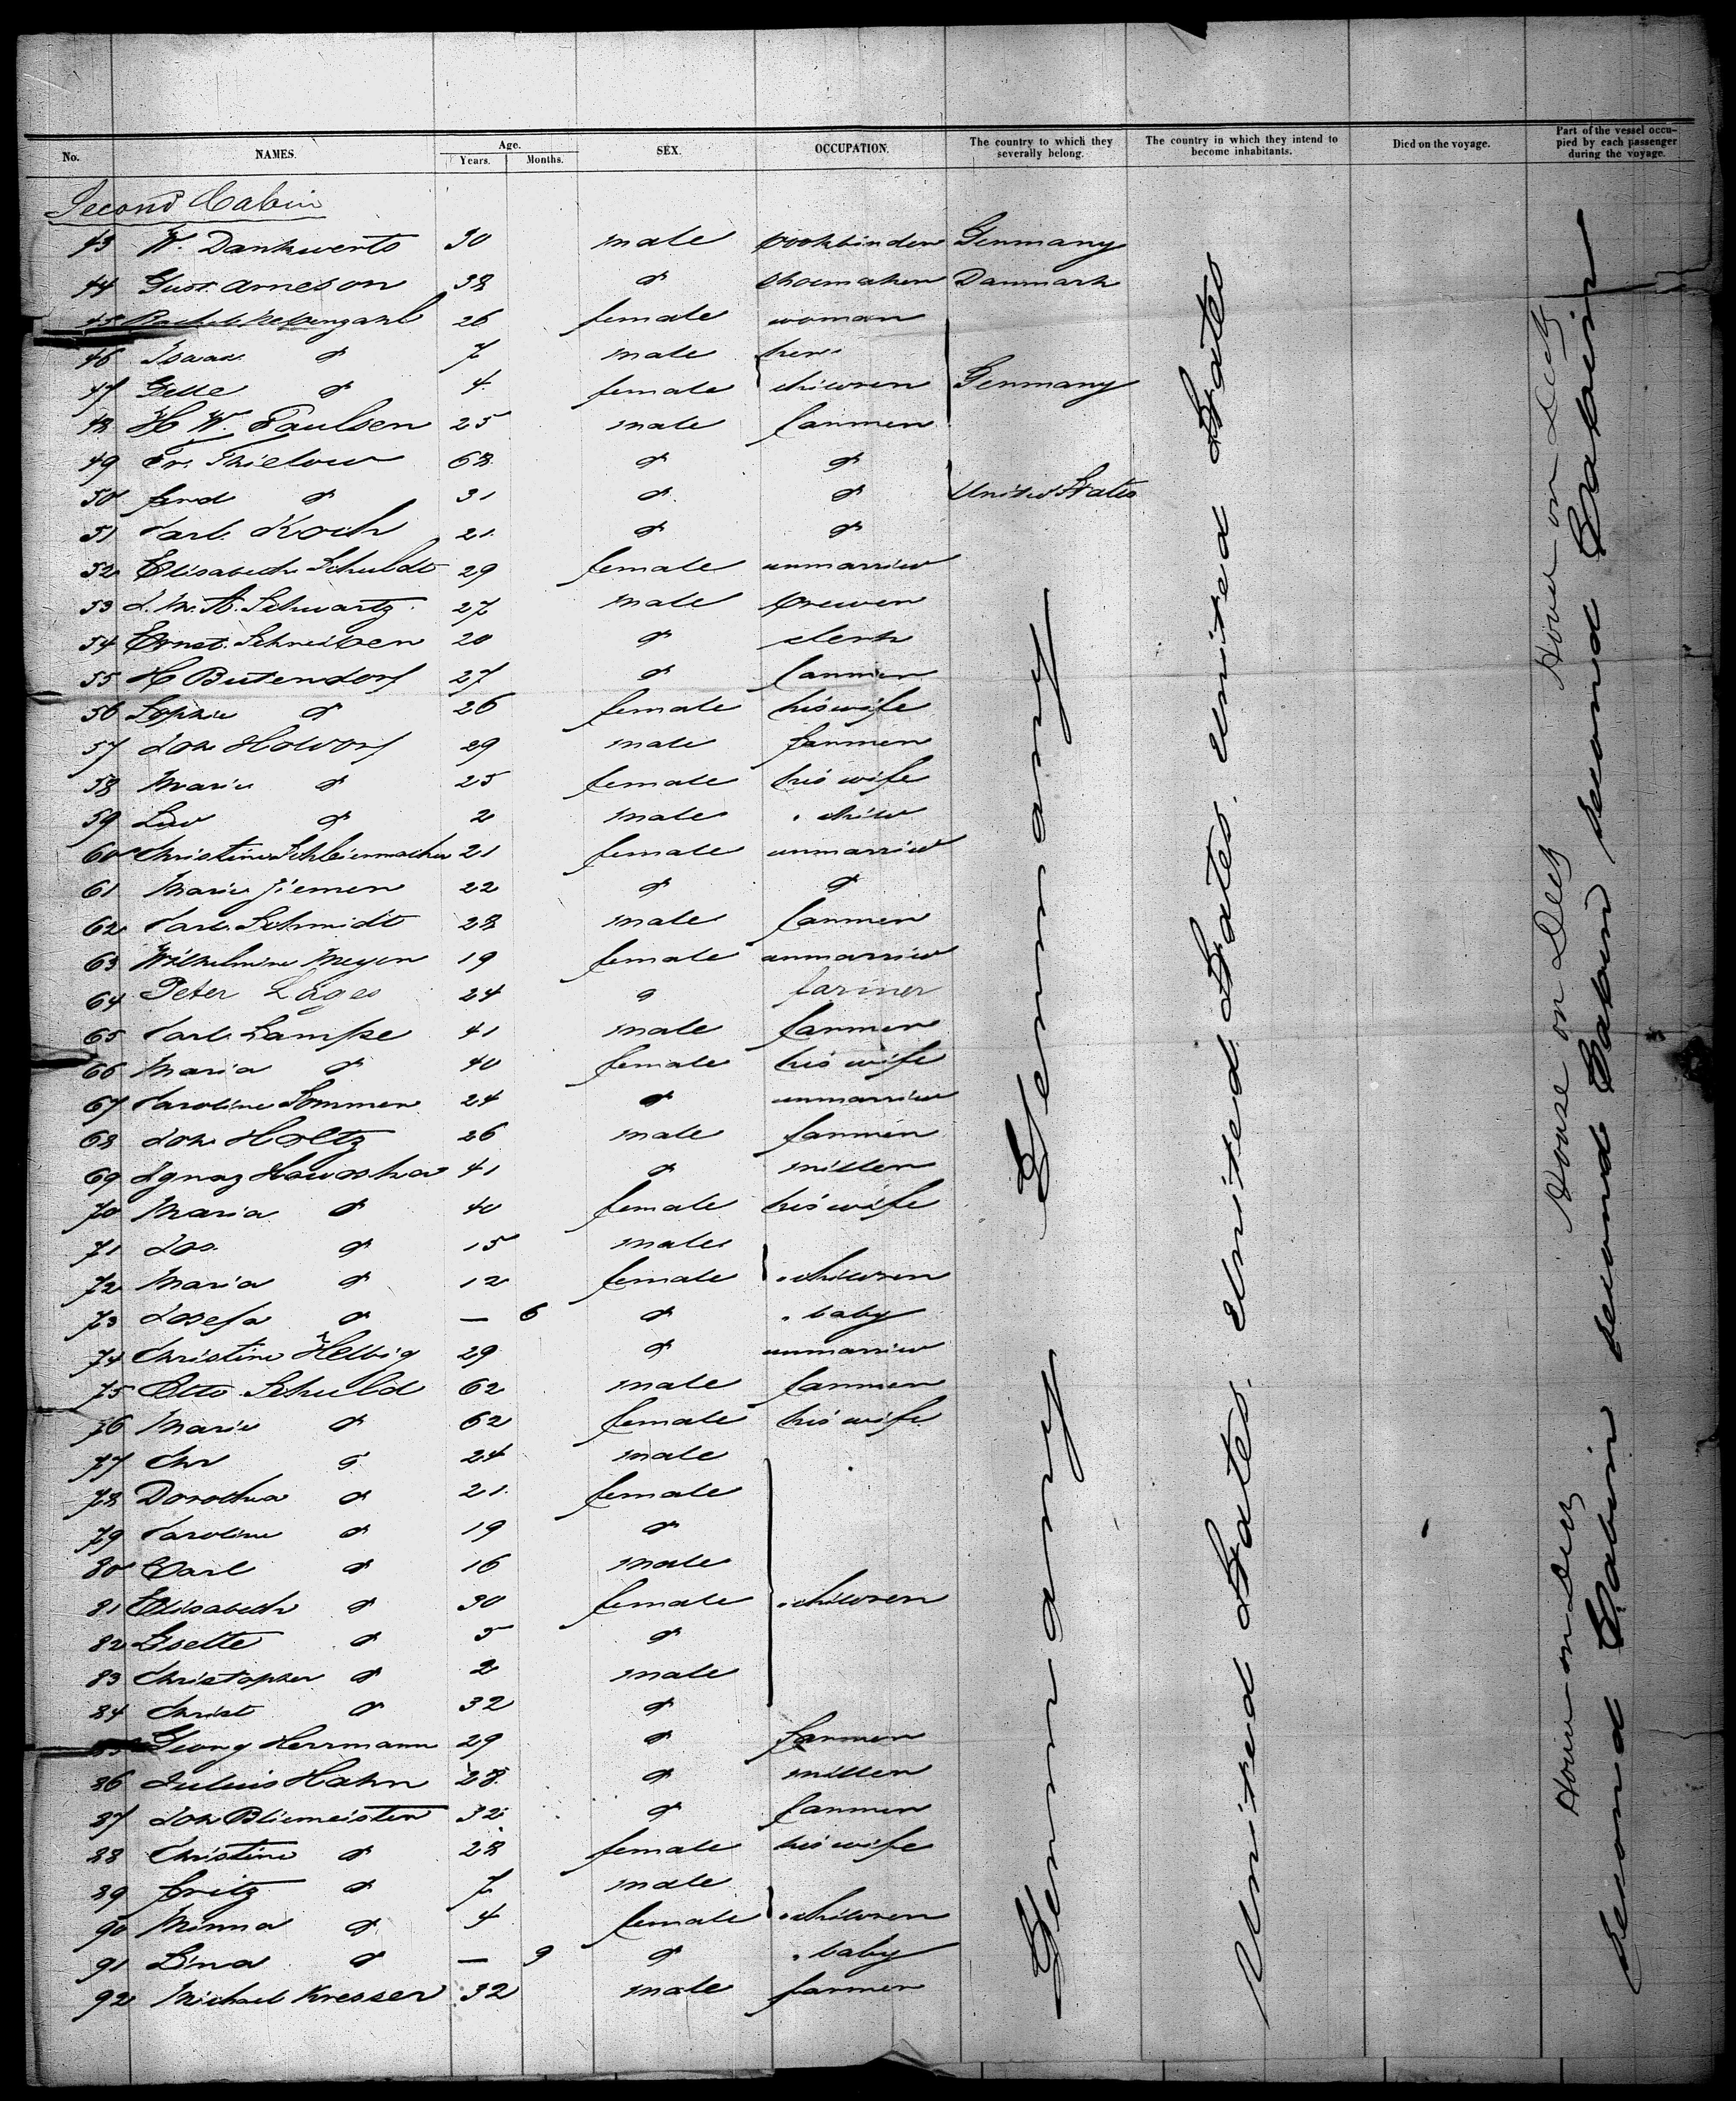 No. NAMES. Age. Years. Months. SEX. OCCUPATION. The country to which they severally belong. The country in which they intend to become inhabitants. Died on the voyage. Part of the vessel occupied by each passenger during the voyage.
Second Cabin
43 W. Dankwerts 30 male bookbinder Germany
44 Gust. Arneson 38 do shoemaker Danmark
45 26 female woman
46 Isaac do 7 male her
47 do 4 female children Germany
48 H. W. Paulsen 25 male farmer
49 Fr. Thielow 68 do do
50 Ferd do 31 do do United States
51 Carl Koch 21 do do
52 Elisabeth Schuldt 29 female unmarried
53 Schwartz 27 male brewer
54 Ernst Schreiber 20 do clerk
55 H Butendorf 27 do farmer
56 Sophie do 26 female his wife
57 Joh 29 male farmer
58 Marie do 25 female his wife
59 do 2 male " child
60 Christine Schleiermacher 21 female unmarried
61 Marie Jiemen 22 do do
62 Carl Schmidt 28 male farmer
63 Wilhelmine Meyer 19 female unmarried
64 Peter Lages 24 do farmer
65 Carl Lampe 41 male farmer
66 Maria do 40 female his wife
67 Caroline Sommer 24 do unmarried
68 Joh Holtz 26 male farmer
69 Ignaz Hawaska 41 do miller
70 Maria do 40 female his wife
71 Jos. do 15 male
72 Maria do 12 female " children
73 Josefa do — 6 do " baby
74 Christine Helbig 29 do unmarried
75 Otto Schuld 62 male farmer
76 Marie do 62 female his wife
77 Chr do 24 male
78 Dorothea do 21 female
79 Caroline do 19 do
80 Carl do 16 male
81 Elisabeth do 30 female " children
82 Lisette do 5 do
83 Christopher do 2 male
84 Christ do 32 do
85 Georg Herrmann 29 do farmer
86 Julius Hahn 28 do miller
87 Joh Bliemeister 32 do farmer
88 Christine do 28 female his wife
89 Fritz do 7 male
90 Minna do 4 female " children
91 Lina do — 9 do " baby
92 Michael Kresser 32 male farmer
Germany Germany
United States. United States. United States
House on Deck House on Deck House on Deck
second Cabin second Cabin second Cabin